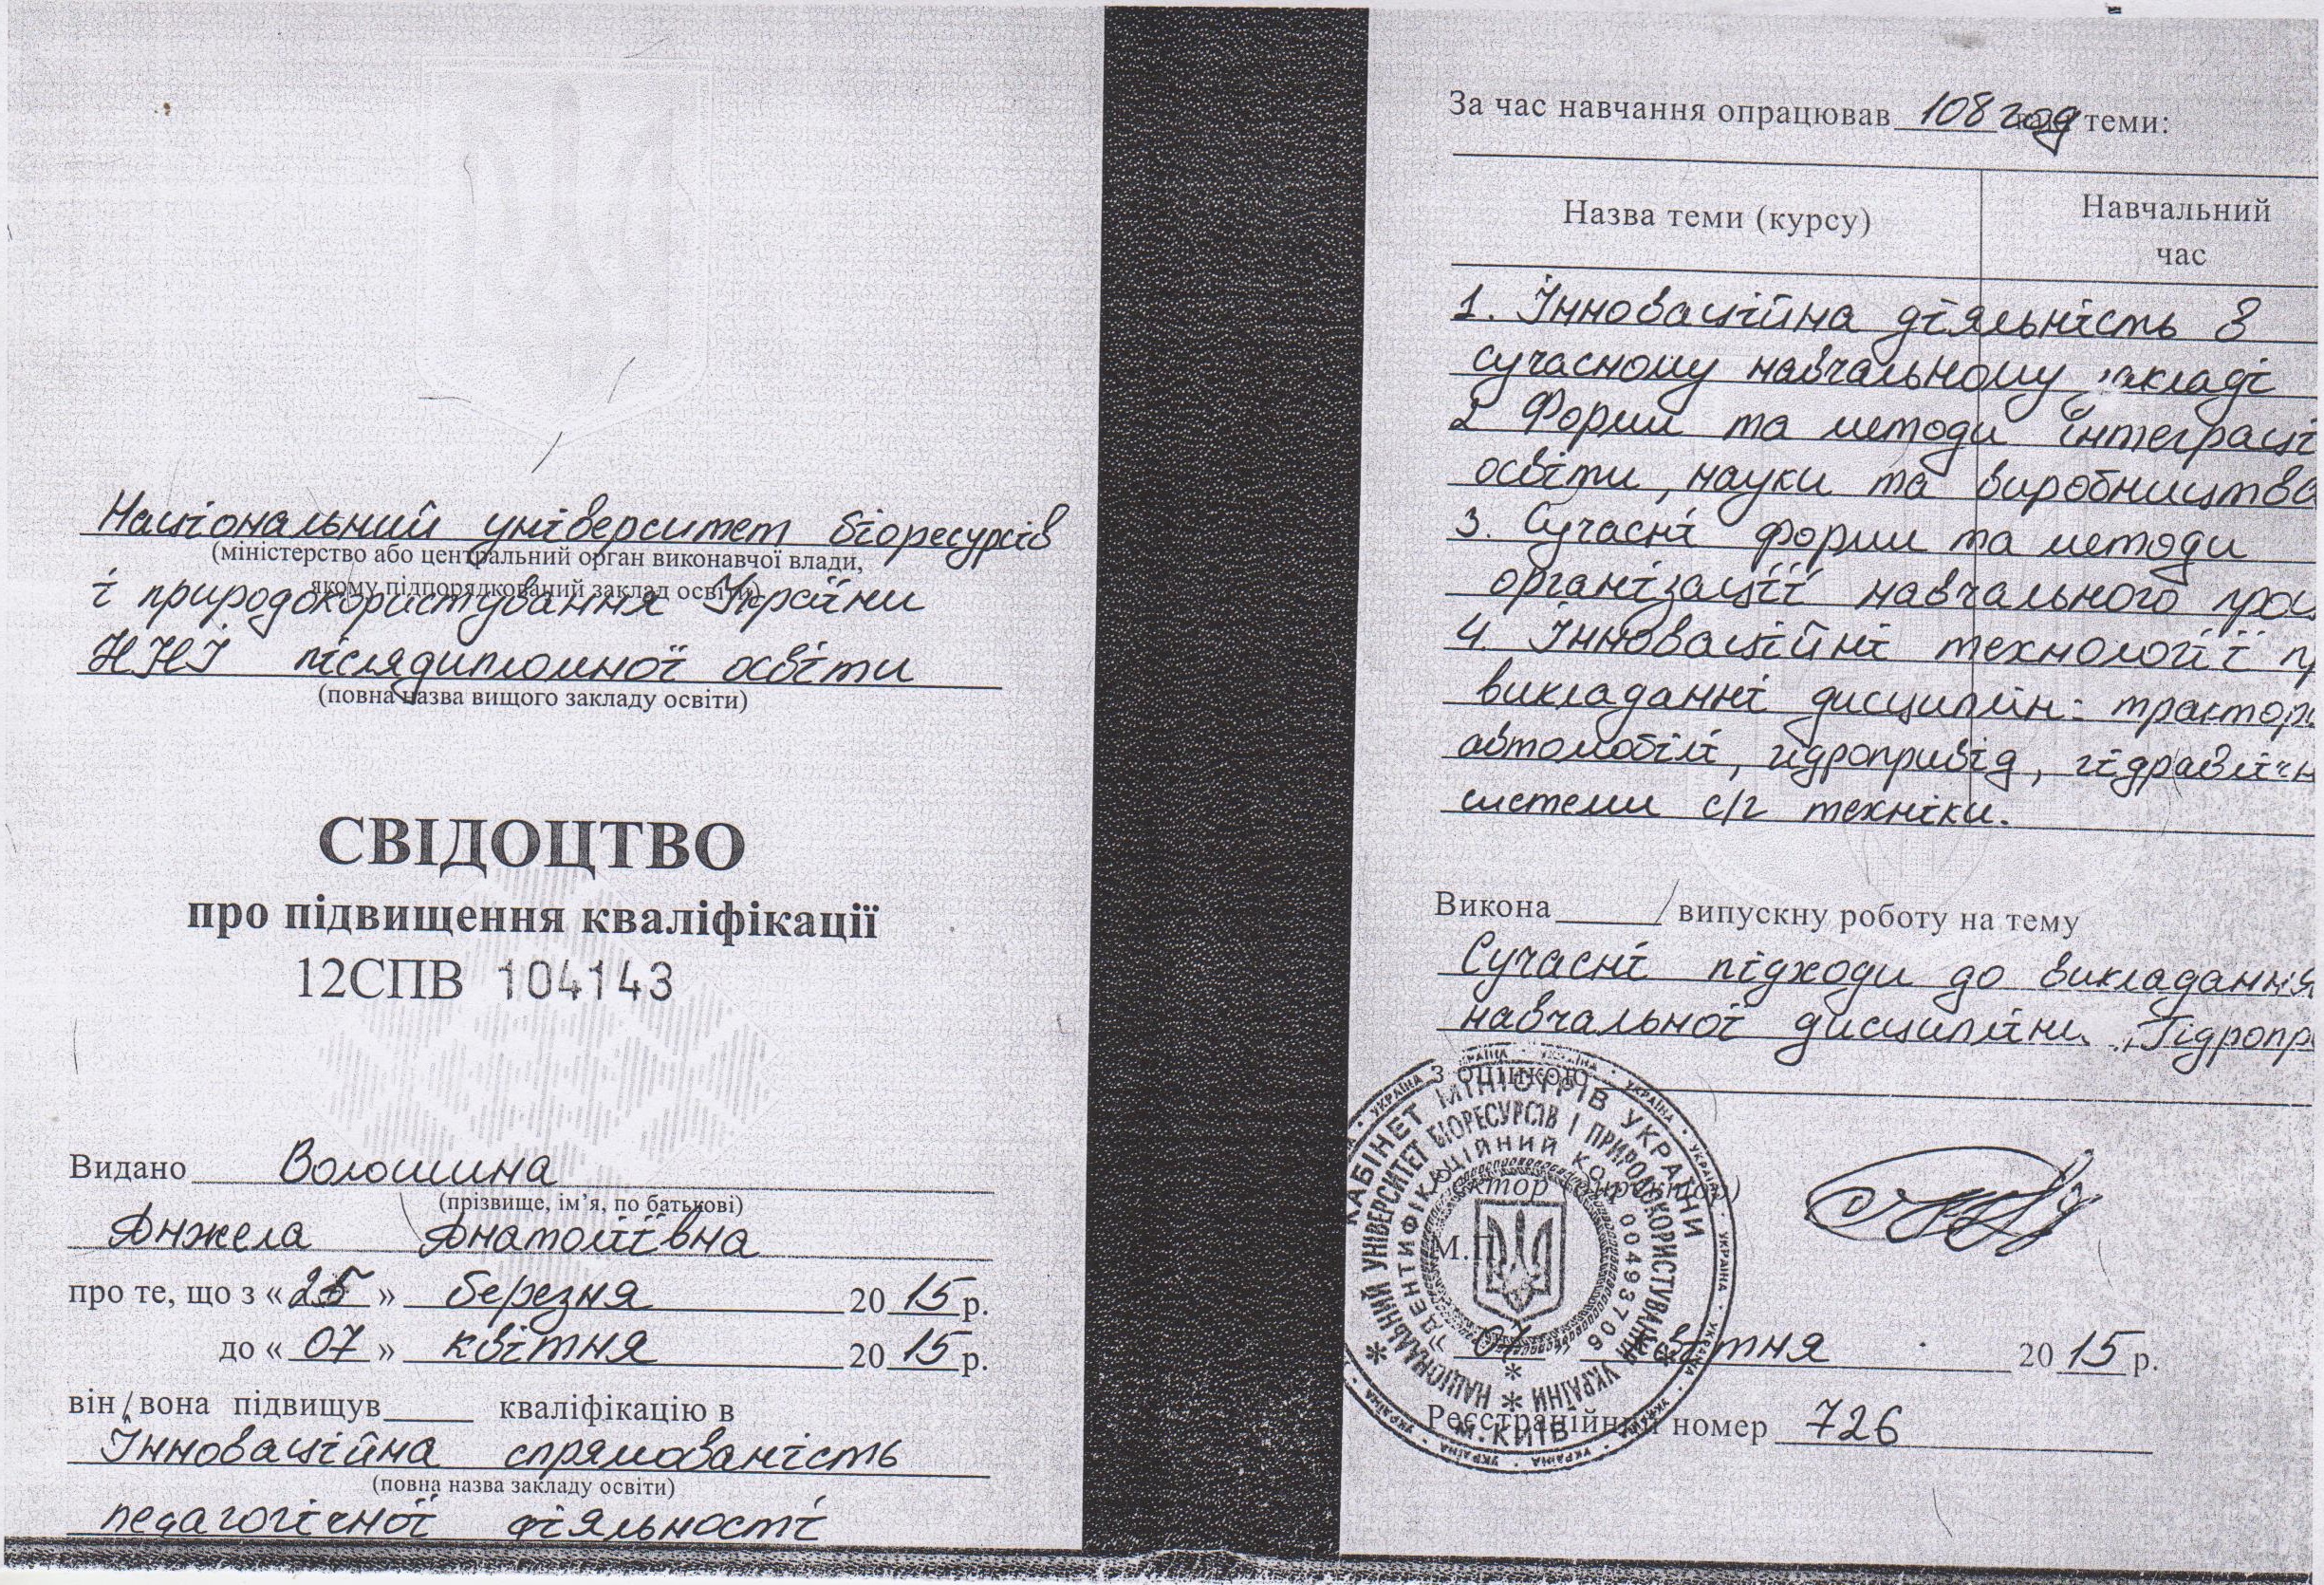 Національний університет біоресурсів
(міністерство або центральний орган виконавчої влади,
якому підпорядкований заклад освіти)
і природокористування України
ННІ післядипломної освіти
(повна назва вищого закладу освіти)
СВІДОЦТВО
про підвищення кваліфікації
12СПВ 104143
Видано Волошина
(прізвище, ім’я, по батькові)
Анжела Анатоліївна
про те, що з « 25 » березня 2015 р.
до « 07 » квітня 2015 р.
він/вона підвищув____ кваліфікацію в
Інноваційна спрямованість
(повна назва закладу освіти)
педагогічної діяльності
За час навчання опрацював 108 год теми:
Назва теми (курсу)
Навчальний
час
1. Інноваційна діяльність в
сучасному навчальному закладі
2 Форми та методи інтеграці
освіти, науки та виробництва
3. Сучасні форми та методи
організації навчального проц
4. Інноваційні технології п
викладанні дисциплін: трактори
автомобілі, гідропривід, гідравлічн
системи с/г техніки.
Викона______/ випускну роботу на тему
Сучасні підходи до викладання
навчальної дисципліни „Гідропр
з оцінкою
Ректор (директор)
М.П.
07 квітня 2015 р.
Реєстраційний номер 726
КАБІНЕТ МІНІСТРІВ УКРАЇНИ
НАЦІОНАЛЬНИЙ УНІВЕРСИТЕТ БІОРЕСУРСІВ І ПРИРОДОКОРИСТУВАННЯ УКРАЇНИ
ІДЕНТИФІКАЦІЙНИЙ КОД 00493706
М.КИЇВ